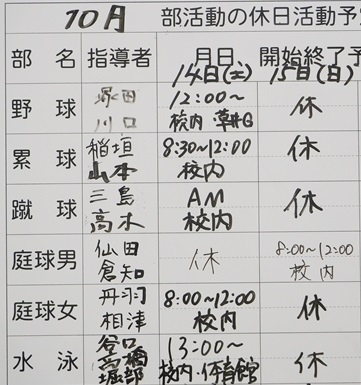 10月 部活動の休日活動予
部 名 指導者 月日、開始終了予
14日(土) 15日(日)
野 球 塚田 川口 12:00~ 校内 草井G 休
累 球 稲垣 山本 8:30~12:00 校内 休
蹴 球 三島 高木 AM 校内 休
庭球男 仏田 倉知 休 8:00~12:00 校内
庭球女 丹羽 相津 8:00~12:00 校内 休
水 泳 谷口 高橋 堀部 13:00~ 校内・体育館 休